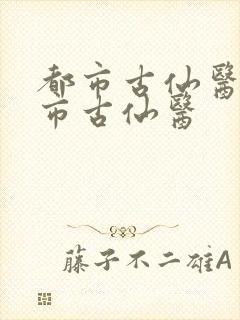 都市古仙醫
市古仙醫
藤子不二雄A